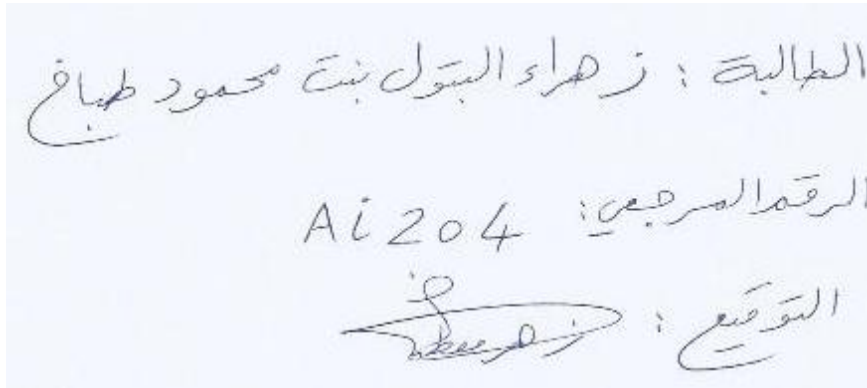 الطالبة : زهراء البتول بنت محمود طباخ
الرقم المرجعي: Ai 204
التوقيع :